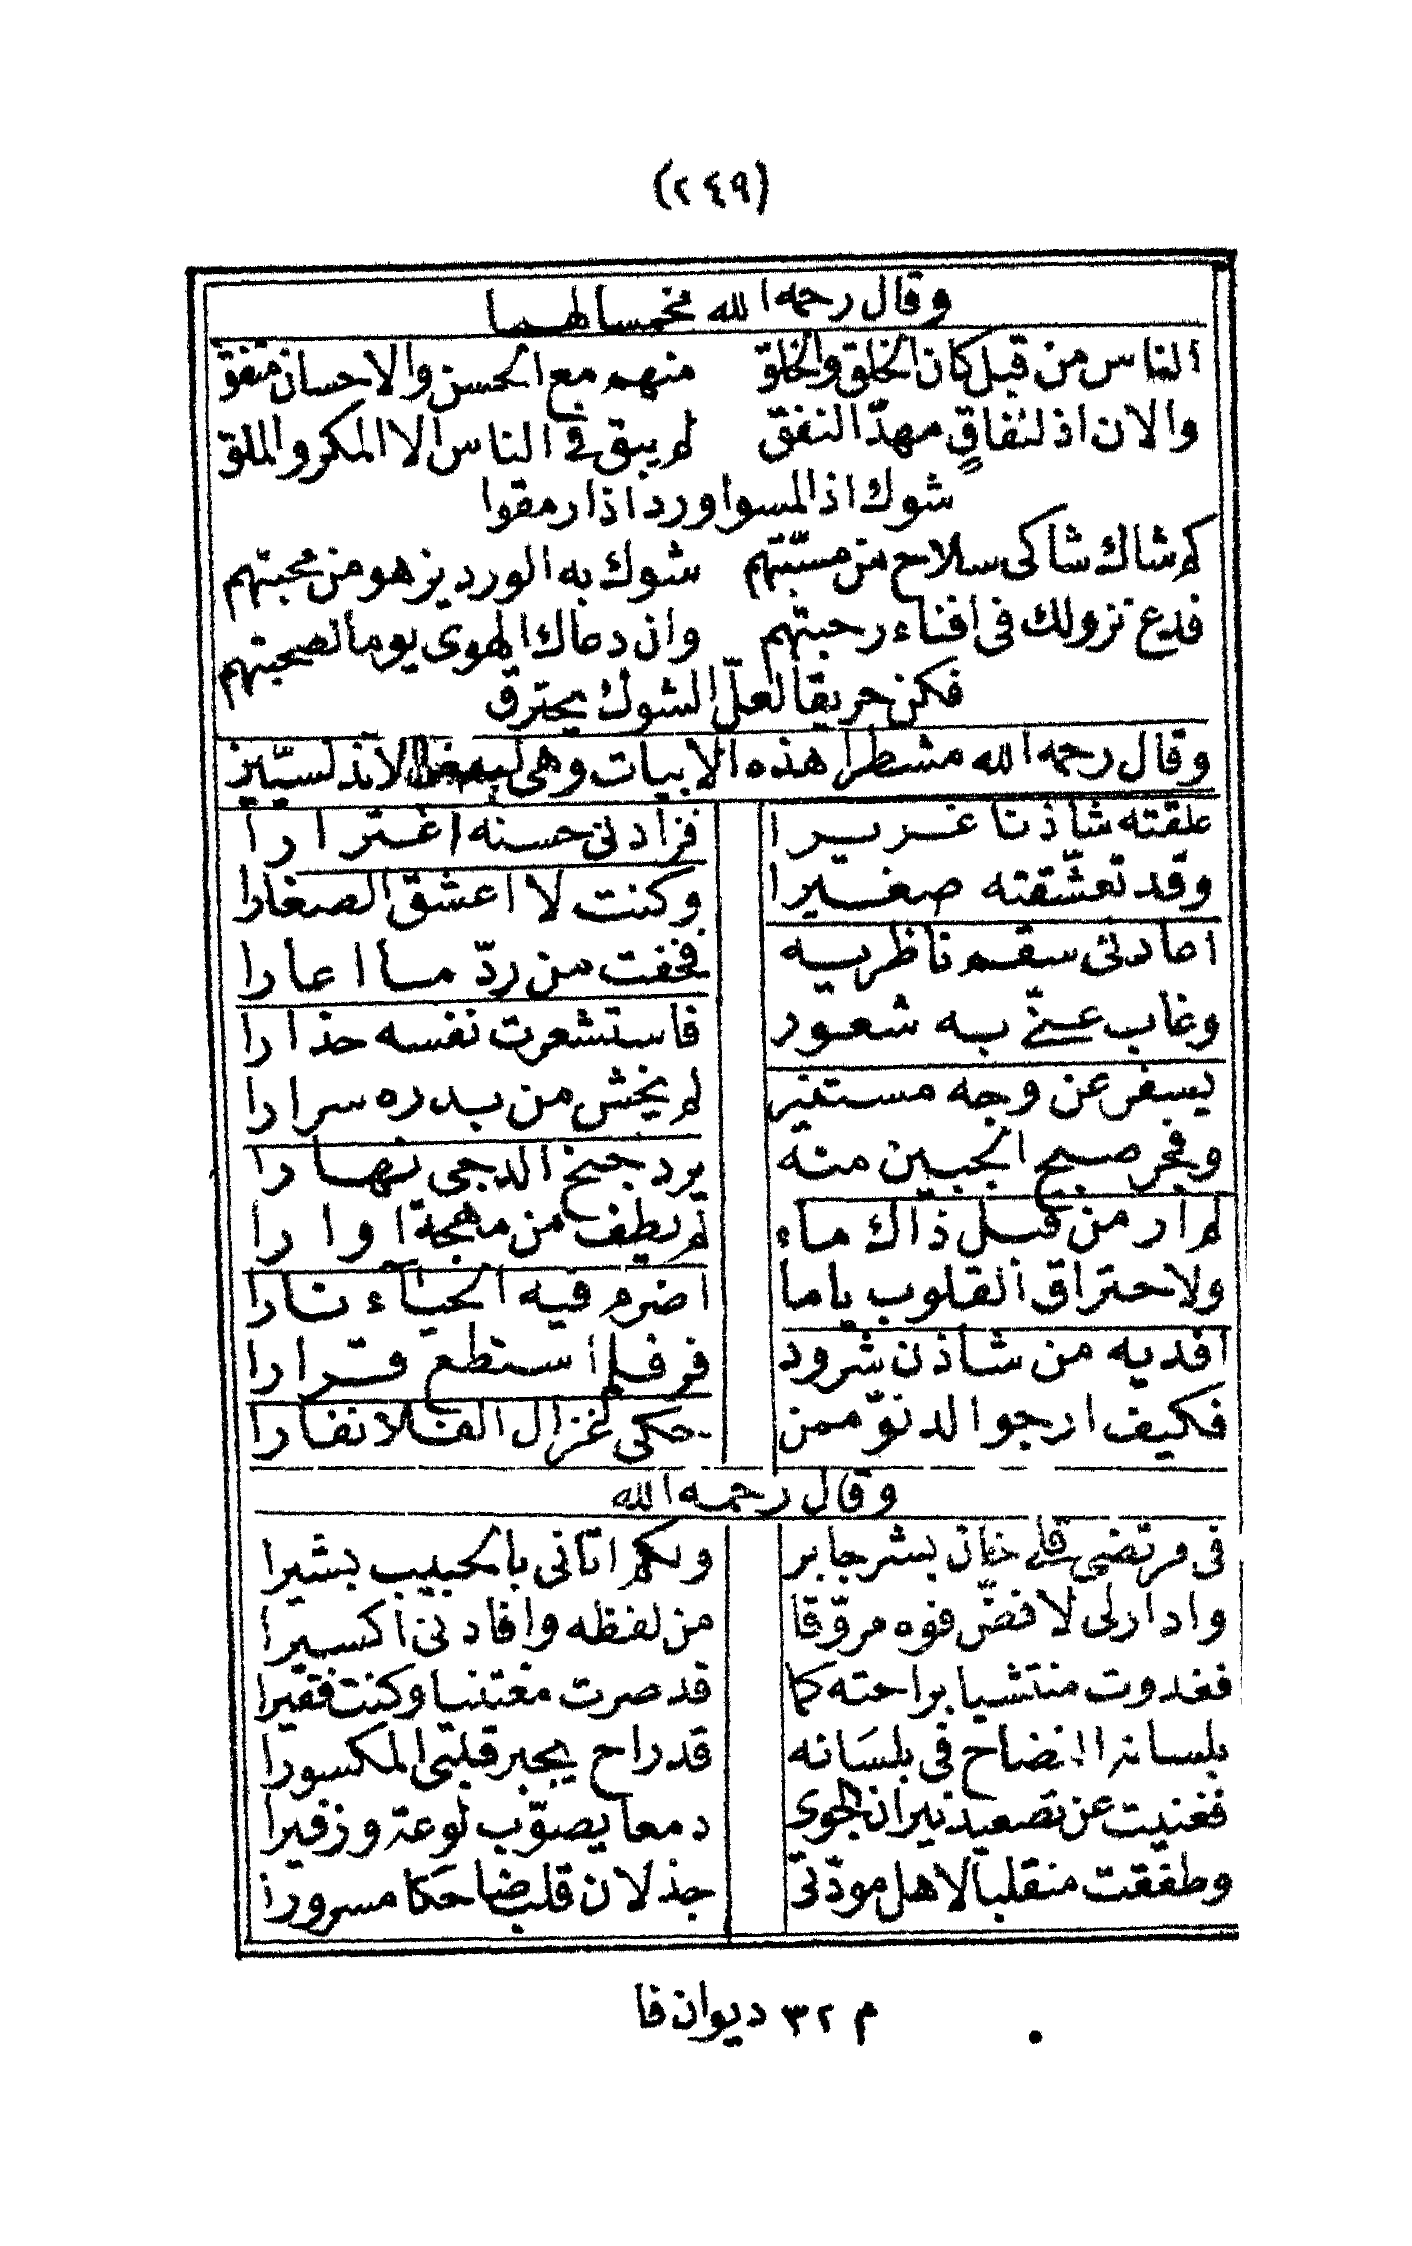 (٢٤٩)
وقال رحمه الله مخمسا لهما
الناس من قبل كان الخلق والخلق منهم مع الحسن والاحسان متفق
والان اذ لنفاق مهدّ النفق لم يبق في الناس الا المكر والملق
شوك اذا لمسوا ورد اذا رمقوا
كم شاك شاكى سلاح من مسبّتهم شوك به الورد يزهو من محبتهم
فدع نزولك فى افناء رحبتهم وان دعاك الهوى يوما لصحبتهم
فكن حريقا لعلّ الشوك يحترق
وقال رحمه الله مشطرا هذه الابيات وهى
علقته شاذنا غريرا فزادنى حسنه اغترارا
وقد تعشّقته صغيرا وكنت لا اعشق الصغارا
اعادنى سقم ناظريه فخفت من ردّ ما اعارا
وغاب عنّى به شعور فاستشعرت نفسه حذارا
يسفر عن وجه مستنير لم يخش من بدره سرارا
وفجر صبيح الجبين منه يرد جنح الدجى نهارا
لم ار من قبل ذاك ماء لم يطف من مهجة اوارا
ولا حتراق القلوب ياما اضرم فيه الحياء نارا
افديه من شاذن شرود فر فلم استطع قرارا
فكيف ارجو الدنوّ ممن حكى لغزال الفلا نفارا
وقال رحمه الله
فى مرتضى قلى خان بشر جابر ولكم اتانى بالحبيب بشيرا
وادار لى لا فضّ فوه مروّقا من لفظه وافادنى اكسيرا
فغدوت منتشيا براحته كما قد صرت مغتنيا وكنت فقيرا
بلسانه النضاح فى بلسانه قد راح يجبر قلبى المكسورا
فغنيت عن تصعيد نيران الجوى دمعا يصوّب لوعة وزفيرا
وطفقت منقلبا لاهل مودّتى جذلان قلب ضاحكا مسرورا
م ٣٢ ديوان فا